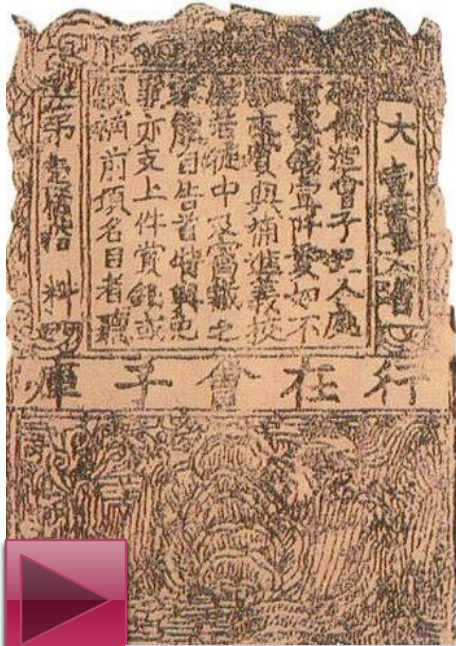 大壹貫文省
造會子犯人處
賞錢壹阡貫如不
支賞與補進義校
若徒中及窩藏之
家能自告首特與免
罪亦支上件賞錢或
願補前項名目者聽
第壹拾料
行在會子庫